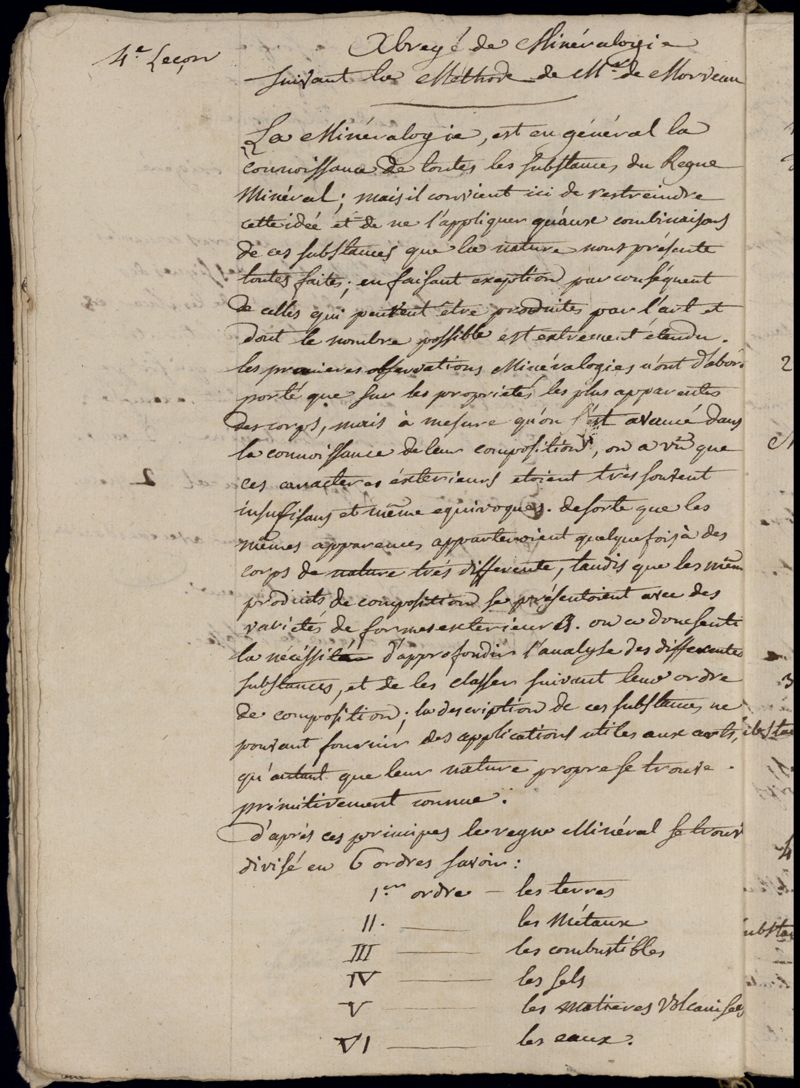 4.e Leçon
Abregé de Minéralogie
suivant la Méthode de Mr. de Morveau
La Minéralogie, est en général la
connoissance de toutes les substances du Regne
Minéral; mais il convient ici de restreindre
cette idée et de ne l'appliquer qu'aux combinaisons
de ces substances que la nature nous présente
toutes faites; en faisant exception par conséquent
de celles qui peuvent être produites par l'art et
dont le nombre possible est extrement étendu.
les premieres observations Minéralogies n'ont d'abord
porté que sur les propriétés les plus apparentes
des corps, mais à mesure qu'on s'est avancé dans
la connoissance de leur composition, on a vu que
ces caracteres éxterieurs etoient très souvent
insufisans et même equivoques. de sorte que les
mêmes apparences appartenoient quelquefois à des
corps de nature très differente, tandis que les même
produits de composition se présentoient avec des
variétés de formes exterieures. on a donc senti
la nécéssité d'approfondir l'analyse des differentes
substances, et de les classer suivant leur ordre
de composition; la description de ces substances ne
pouvant fournir des applications utiles aux arts,
qu'autant que leur nature propre se trouve
primitivement connue.
D'après ces principes le regne Minéral se trouve
divisé en 6 ordres savoir:
1.er ordre — les terres
II. — les Métaux
III — les combustibles
IV — les sels
V — les matieres Volcanisées
VI — les eaux.
2
3
4